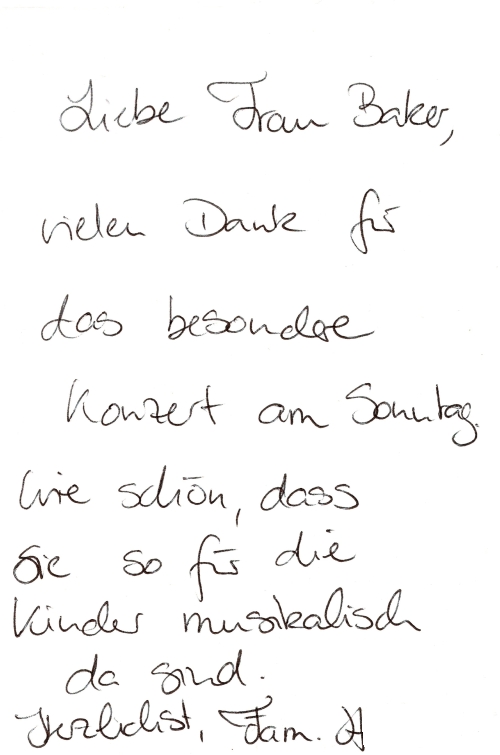 Liebe Frau Baker,
vielen Dank für
das besondere
Konzert am Sonntag.
Wie schön, dass
Sie so für die
Kinder musikalisch
da sind.
Herzlichst, Fam. H